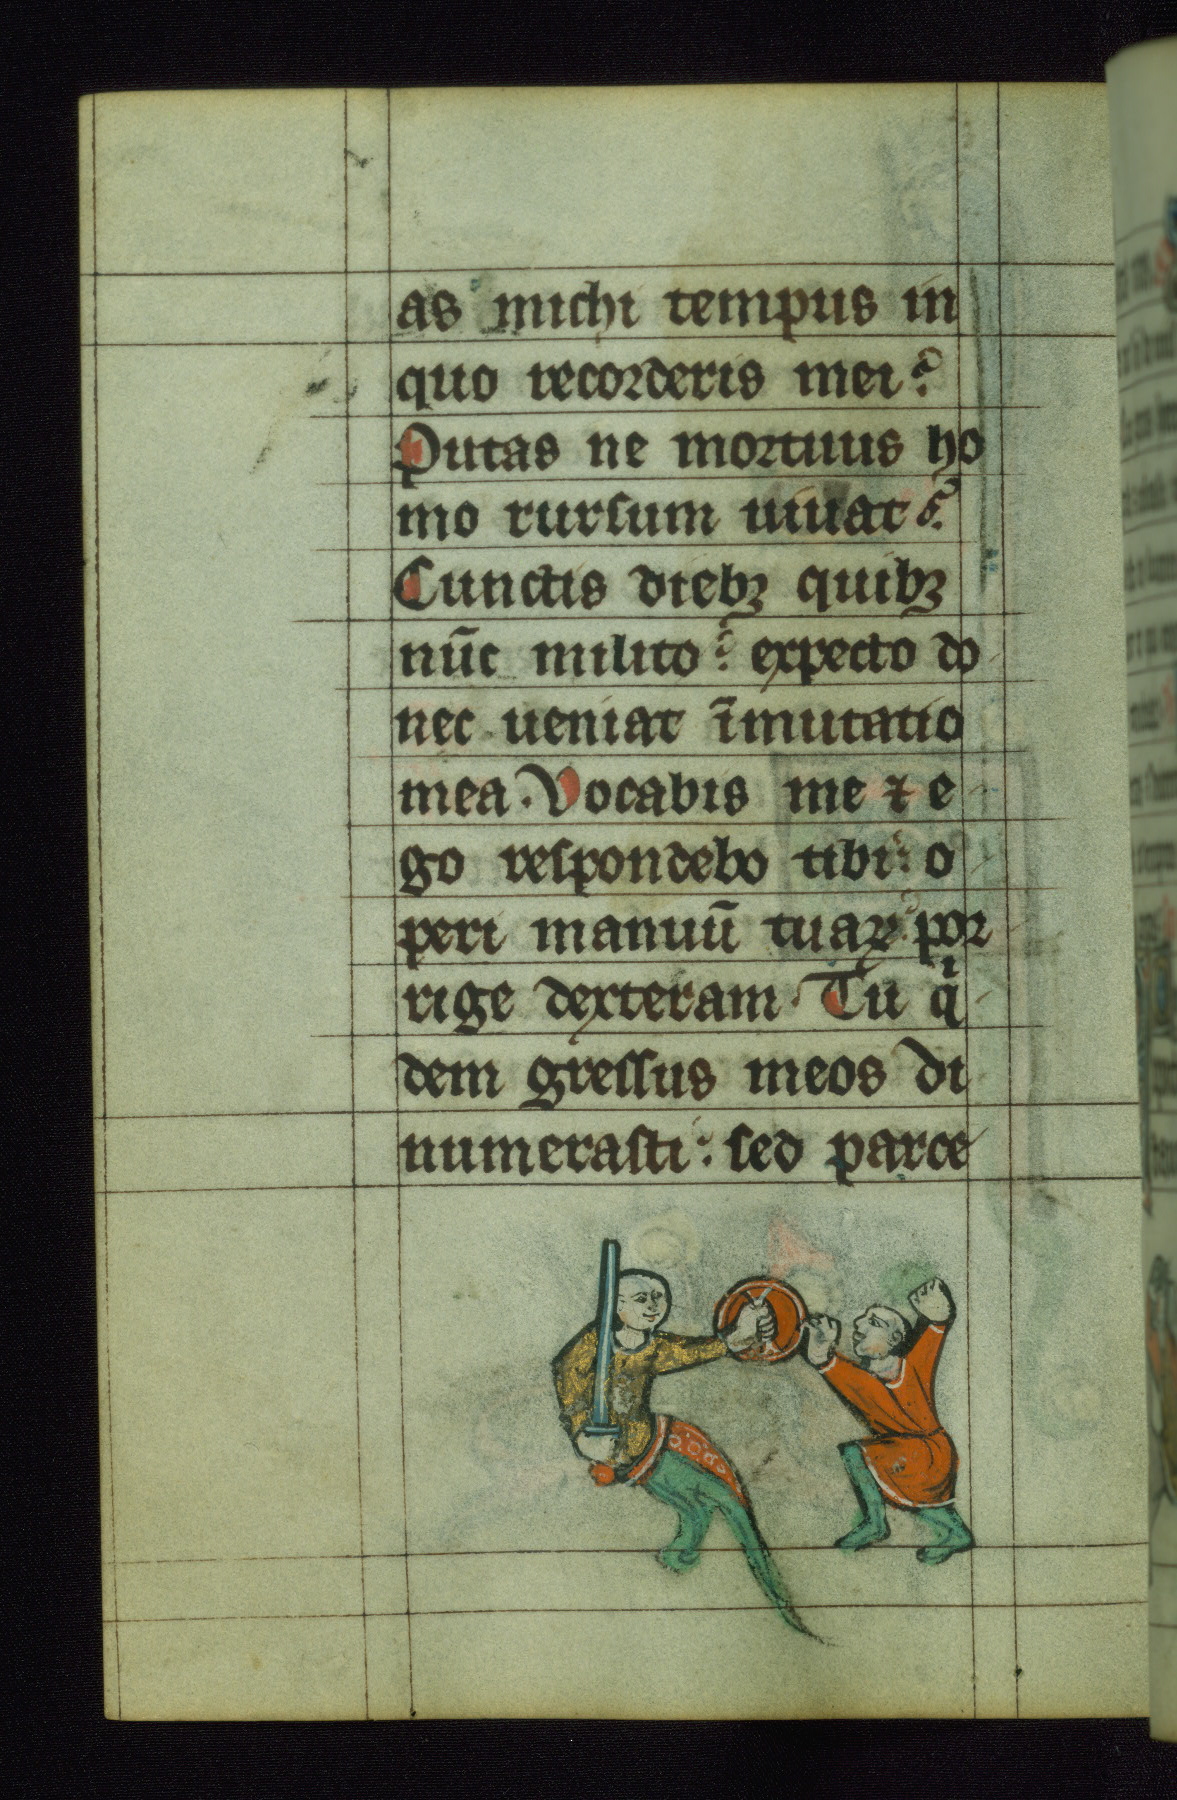 as michi tempus in
quo recorderis mei?
Putas ne mortuus ho
mo rursum uiuat?
Cunctis diebꝫ quibꝫ
nūc milito: expecto do
nec ueniat īmutatio
mea. Vocabis me ⁊ e
go respondebo tibi: o
peri manuū tuaꝝ por
rige dexteram. Tu qͥ
dem gressus meos di
numerasti: sed parce